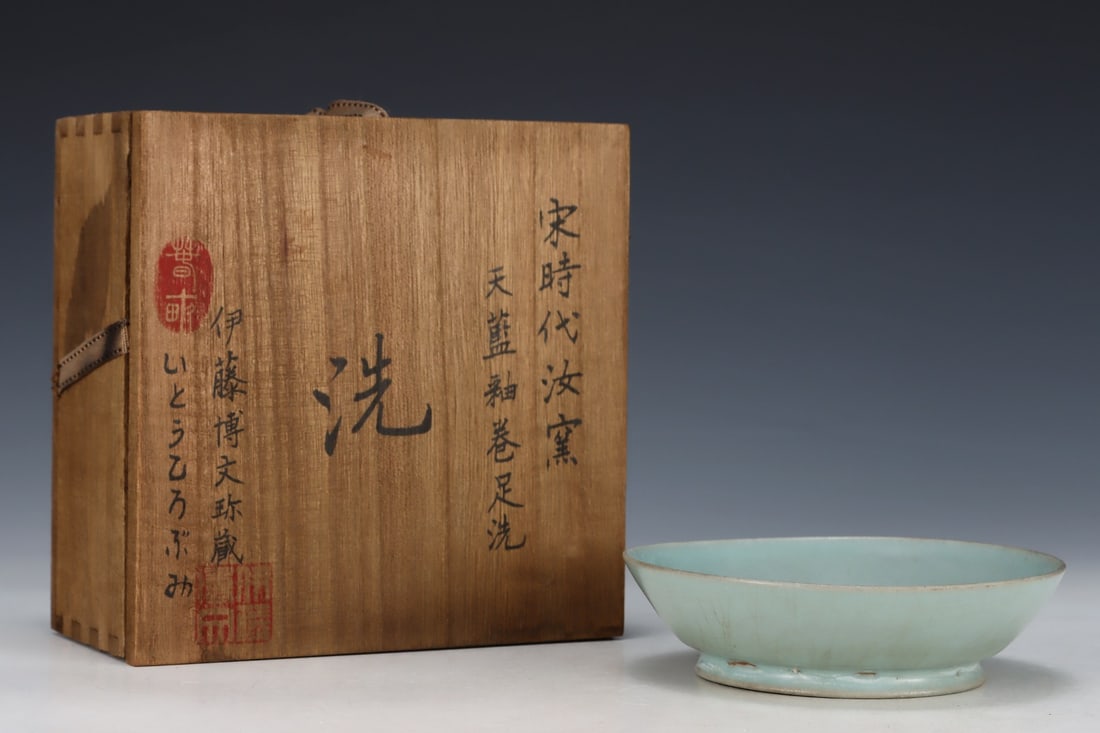 宋時代汝窯
天藍袖卷足洗
洗
伊藤博文珎蔵
いとうひろぶみ